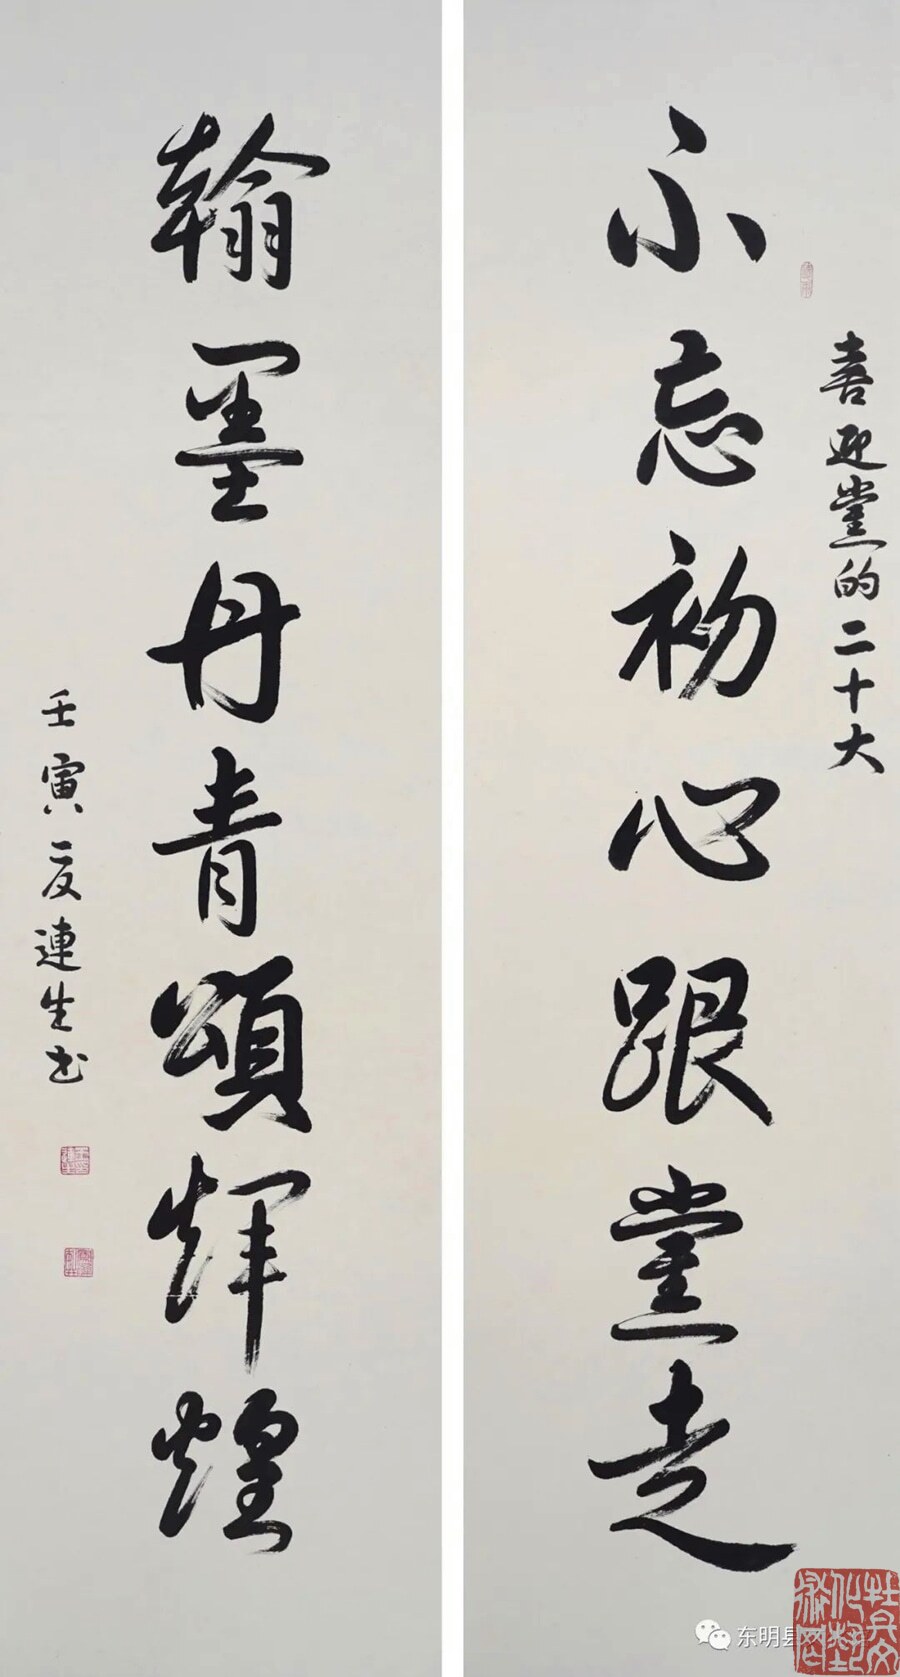 喜迎黨的二十大
不忘初心跟黨走
翰墨丹青頌輝煌
壬寅夏連生书
东明县